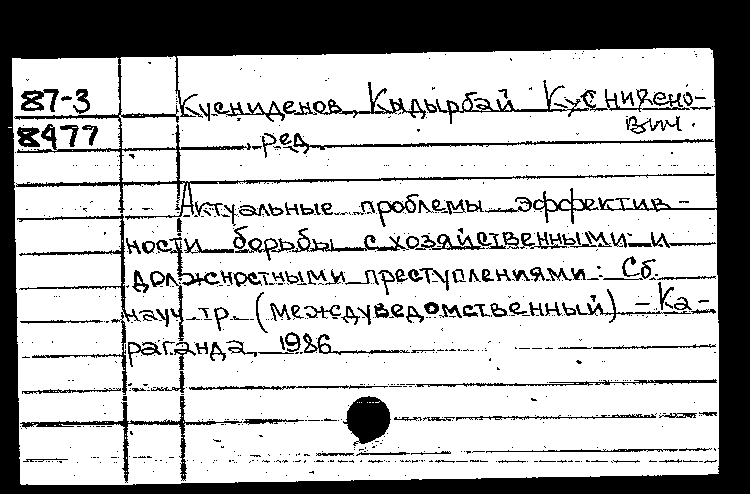 87-3 Кусниденов, Кыдырбай Кусниdено-
вич.
8477 , ред.
Актуальные проблемы эффектив-
ности борьбы с хозяйственными и
должностными преступлениями: Сб.
науч. тр. (междуведомственный) - Ка-
раганда, 1986.